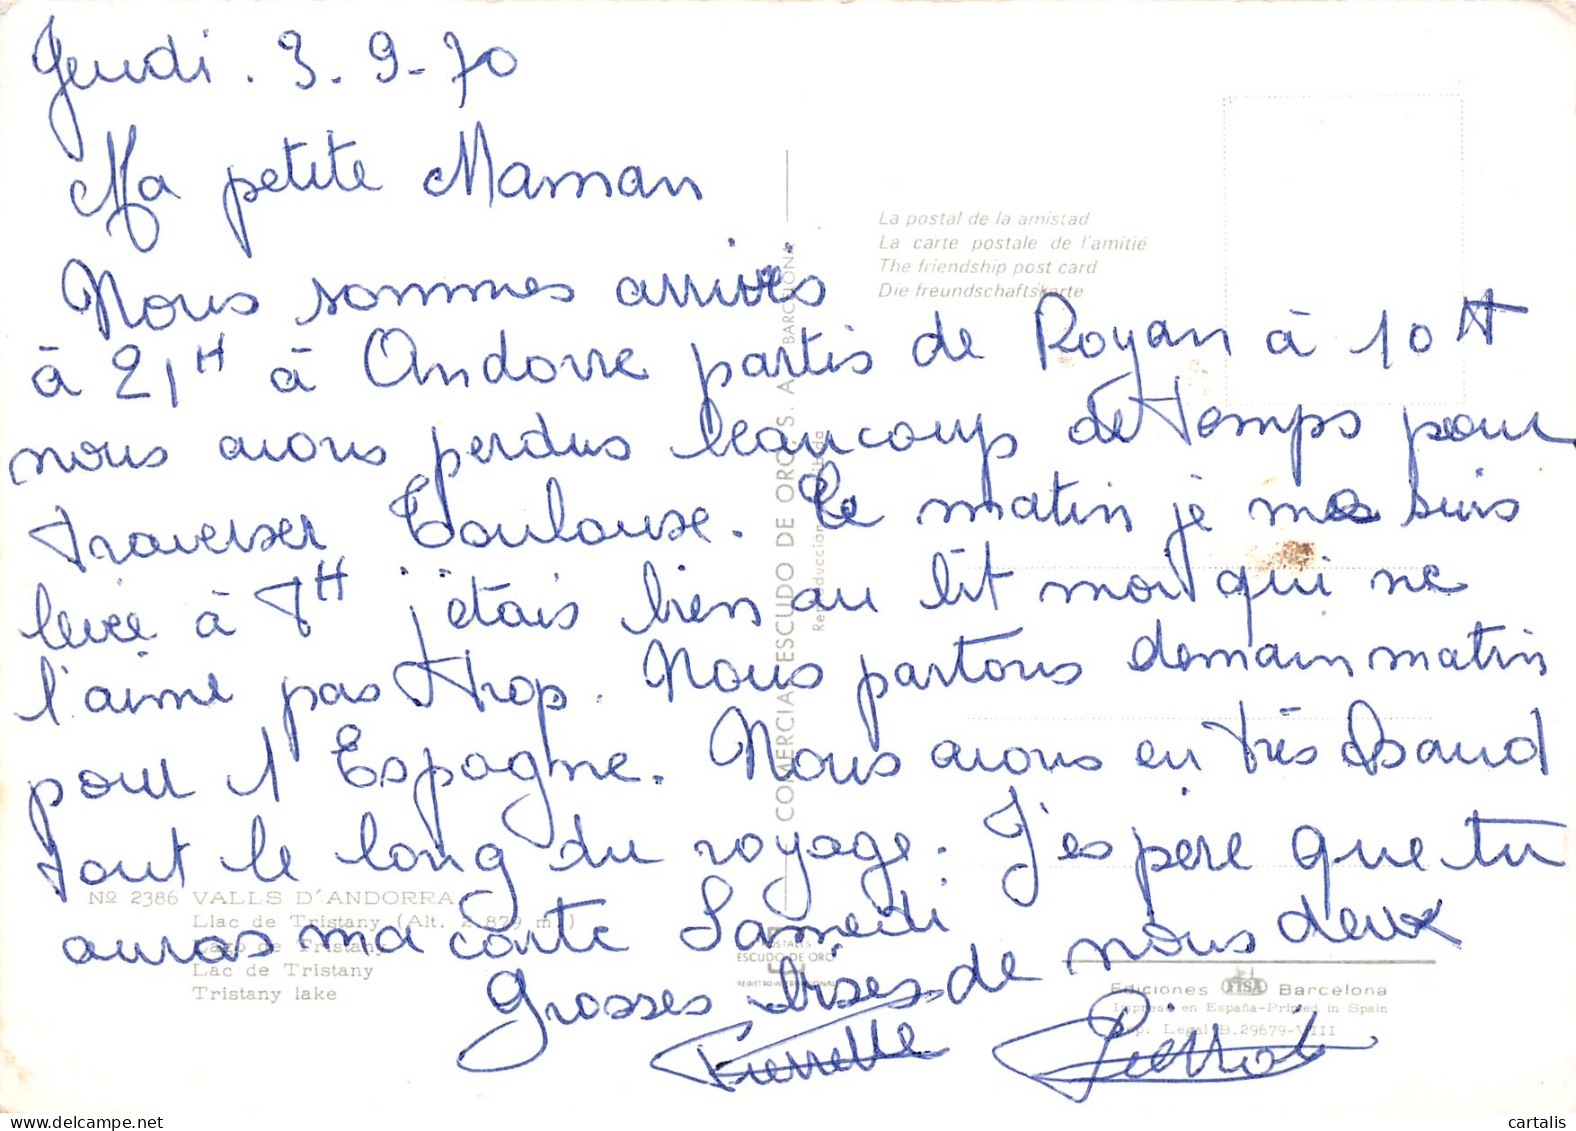 Jeudi . 3. 9. 70
Ma petite Maman
La postal de la amistad
La carte postale de l'amitié
The friendship post card
Die freundschaftskarte
Nous sommes arrivés
à 21H à Andorre partis de Royan à 10H
nous avons perdus beaucoup de temps pour
traverser Toulouse. Ce matin je me suis
levée à 7H j'étais bien au lit moi qui ne
l'aime pas trop. Nous partons demain matin
pour l'Espagne. Nous avons eu très chaud
tout le long du voyage. J'espère que tu
auras ma carte Samedi
Grosses bises de nous deux
Pierrette Pierrot
COMERCIAL ESCUDO DE ORO, S. A. BARCELONA
Reproducción prohibida
Nº 2386 VALLS D'ANDORRA
Llac de Tristany (Alt. 2.879 m.)
Lago de Tristany
Lac de Tristany
Tristany lake
POSTALES
ESCUDO DE ORO
REGISTRO INTERNACIONAL
Ediciones FISA Barcelona
Impreso en España-Printed in Spain
Dep. Legal B.29679-VIII
cartalis